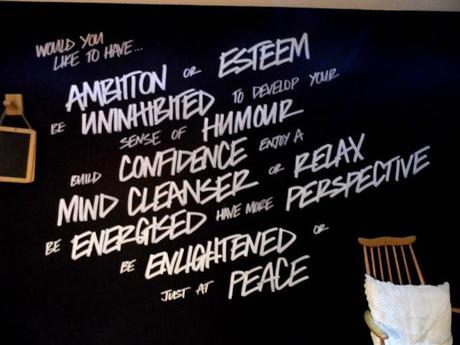 WOULD YOU
LIKE TO HAVE...
AMBITION OR ESTEEM
BE UNINHIBITED TO DEVELOP YOUR
SENSE OF HUMOUR
BUILD CONFIDENCE ENJOY A
MIND CLEANSER OR RELAX
BE ENERGISED HAVE MORE PERSPECTIVE
BE ENLIGHTENED OR
JUST AT PEACE